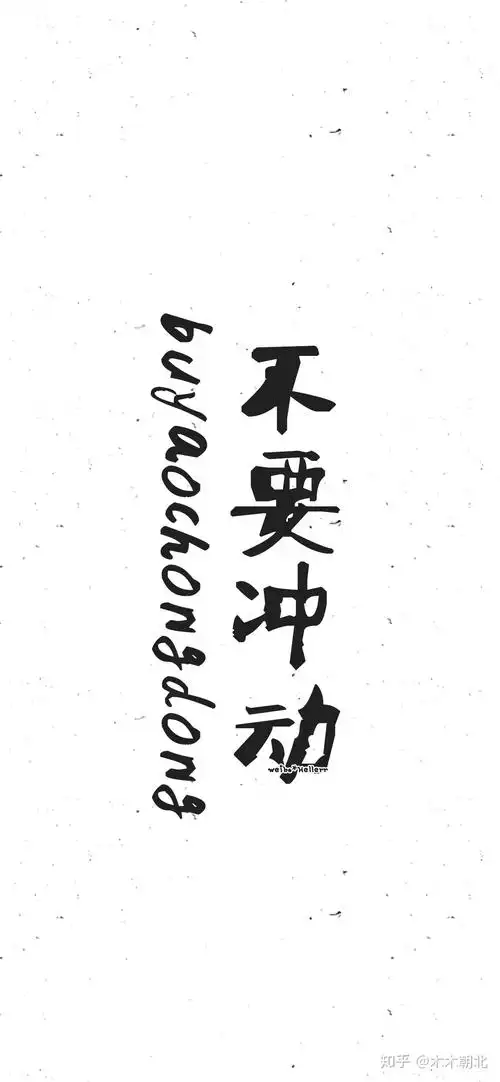 不要冲动
buyaochongdong
weibo*Hellerr
知乎 @木木朝北